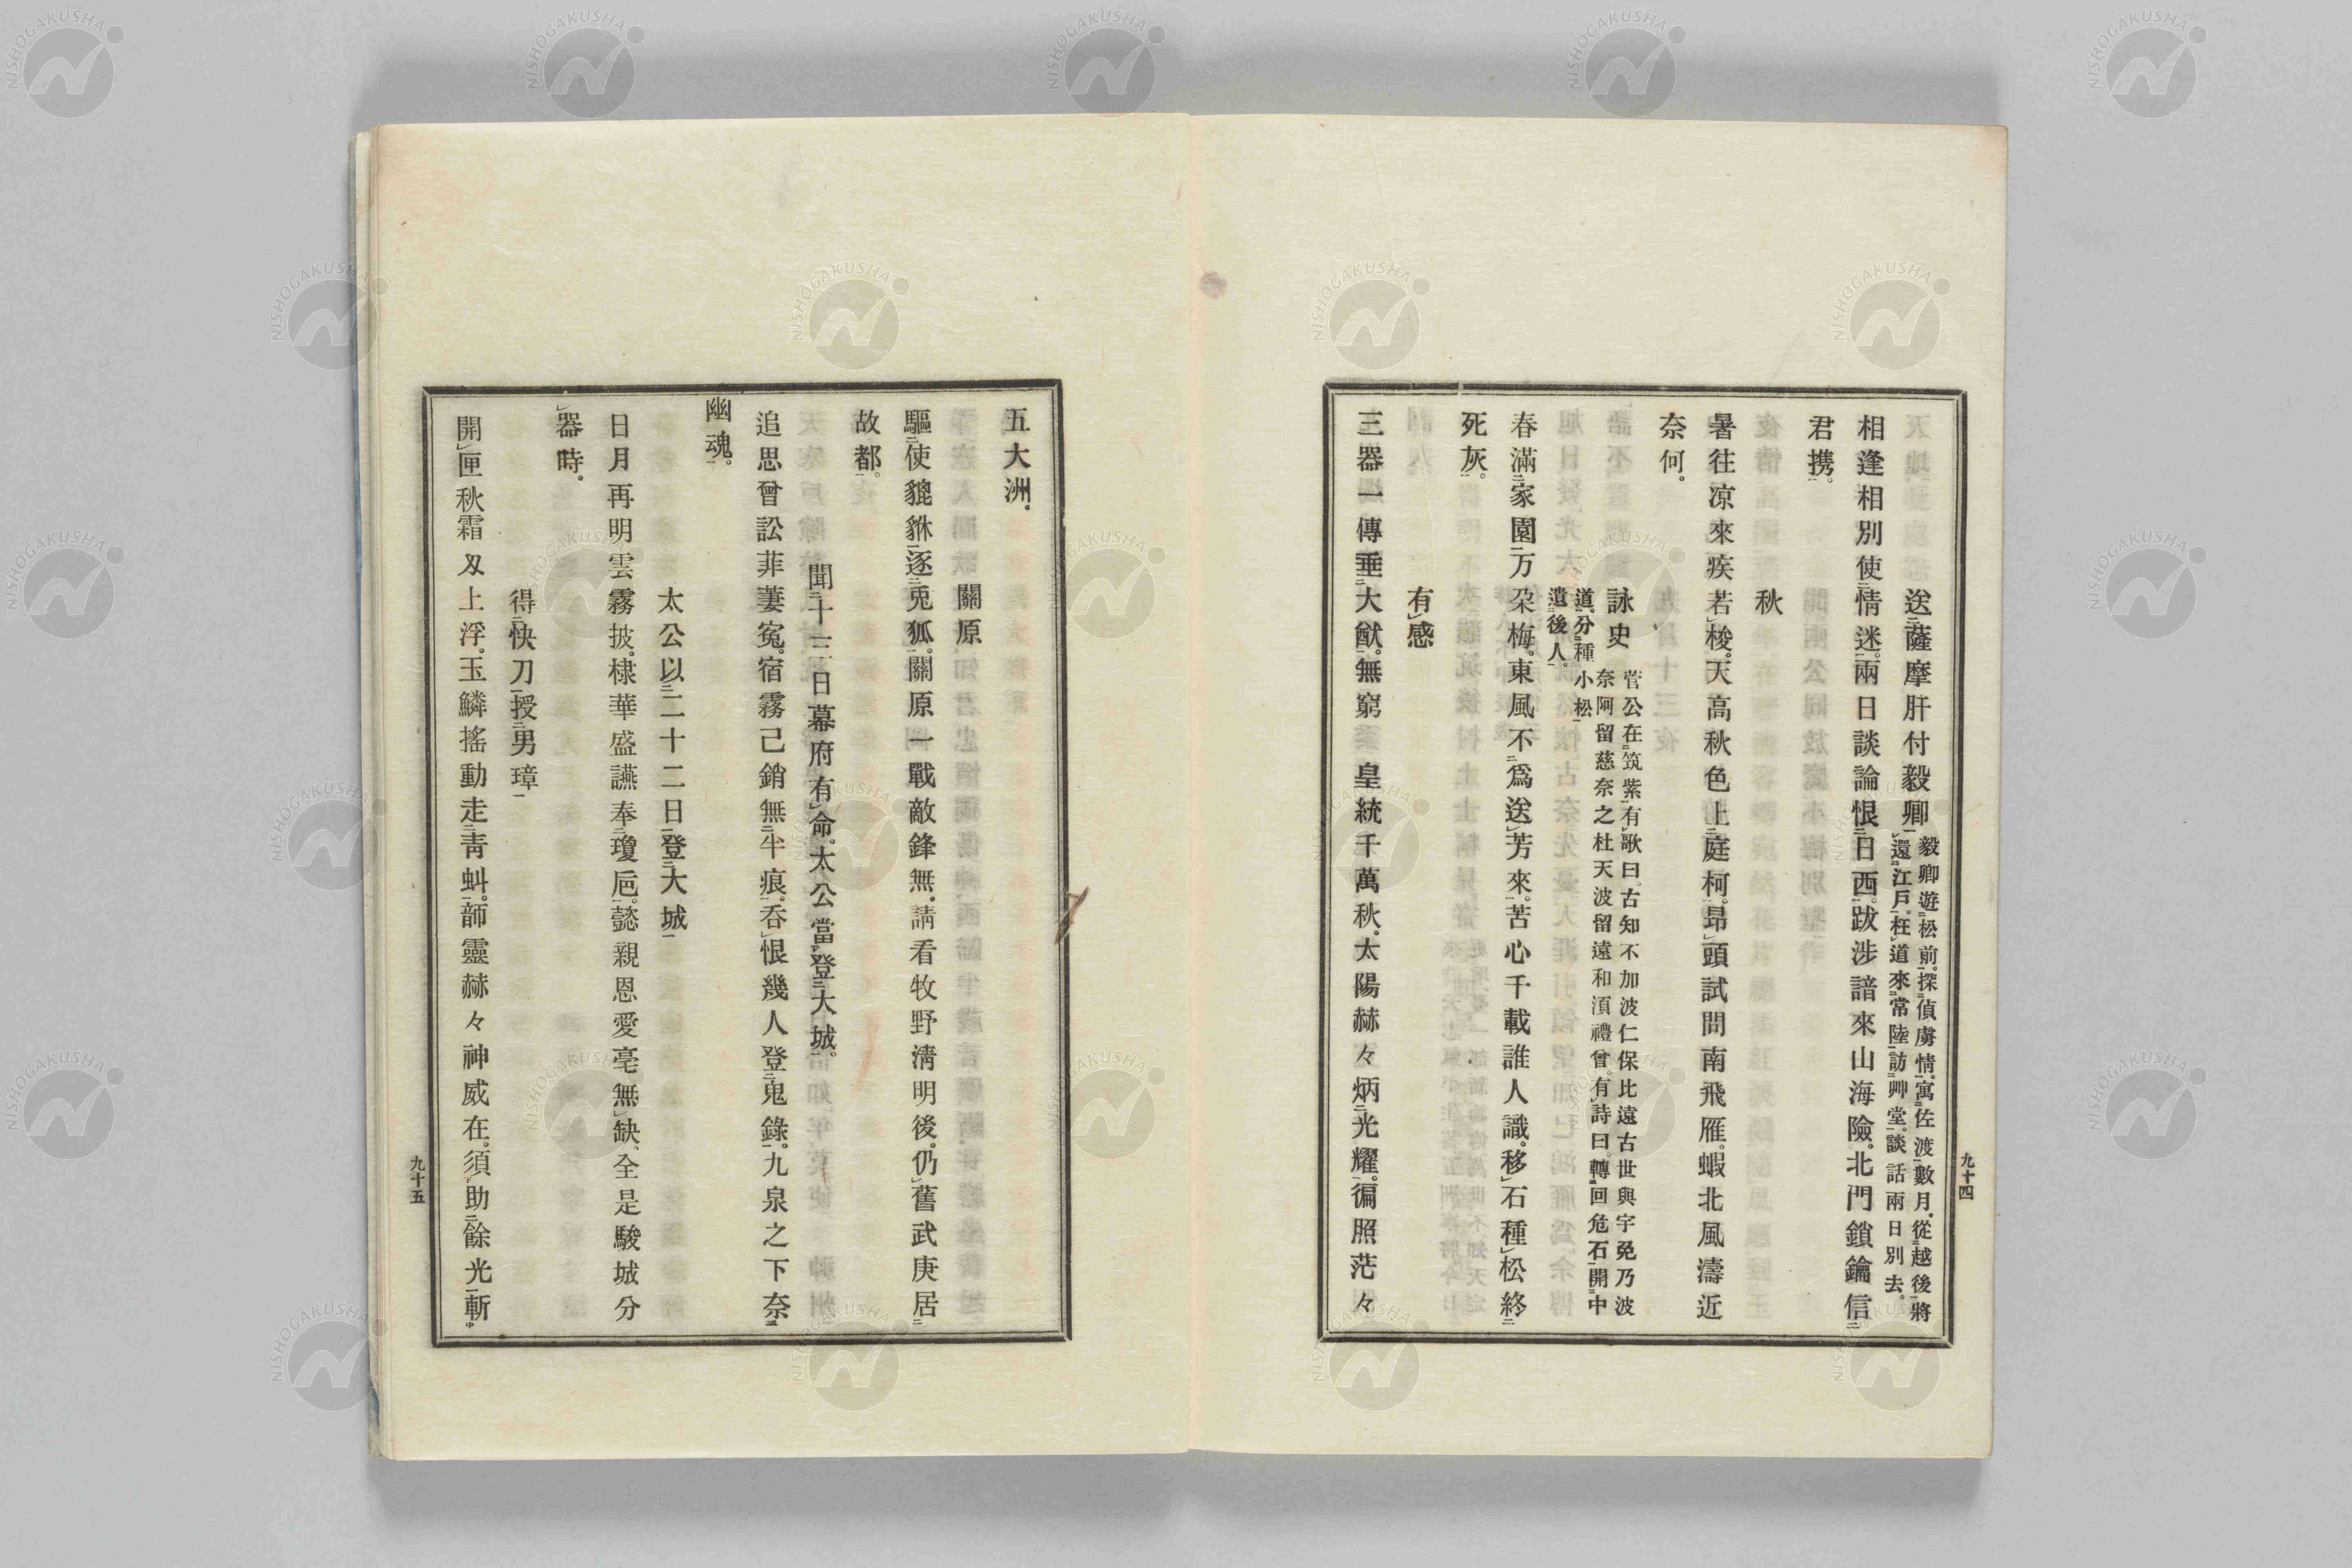 送薩摩肝付毅卿 毅卿遊松前。探偵虜情。寓佐渡數月。從越後將
還江戸。枉道來常陸訪艸堂。談話兩日別去。
相逢相別使情迷。兩日談論恨日西。跋涉諳來山海險。北門鎖鑰信
君携。
秋
暑往凉來疾若梭。天高秋色上庭柯。昂頭試問南飛雁。蝦北風濤近
奈何。
詠史 菅公在筑紫有歌曰。古知不加波仁保比遠古世與宇免乃波
奈阿留慈奈之杜天波留遠和須禮曾。有詩曰。轉回危石開中
道。分種小松
遺後人。
春滿家園万朶梅。東風不爲送芳來。苦心千載誰人識。移石種松終
死灰。
有感
三器一傳垂大猷。無窮皇統千萬秋。太陽赫々炳光耀。徧照茫々
九十四
五大洲。
關原
驅使貔貅逐兎狐。關原一戰敵鋒無。請看牧野淸明後。仍舊武庚居
故都。
聞十三日幕府有命。太公當登大城。
追思曾訟菲萋寃。宿霧已銷無半痕。呑恨幾人登鬼錄。九泉之下奈
幽魂。
太公以二十二日登大城
日月再明雲霧披。棣華盛讌奉瓊巵。懿親恩愛毫無缺。全是駿城分
器時。
得快刀授男璋
開匣秋霜刄上浮。玉鱗搖動走靑虯。韴靈赫々神威在。須助餘光斬
九十五
NISHOGAKUSHA